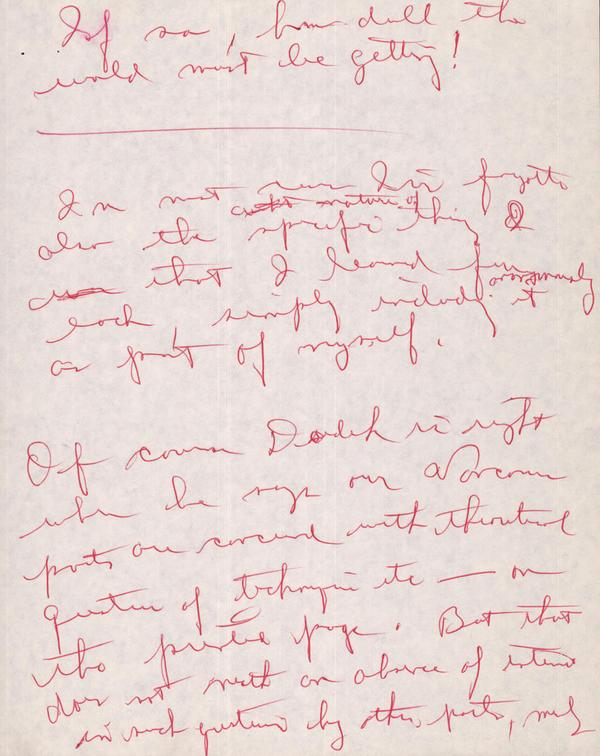 If so, how dull the
world must be getting!
I'm not sure I've forgotten
nature of
also the specific thing
that I learned from
anonymously
each, simply include it
as part of myself.
Of course Dudek is right
when he says our
poets are concerned with theoretical
question of technique etc — on
the printed page. But that
does not an absence of interest
in such questions by other poets,